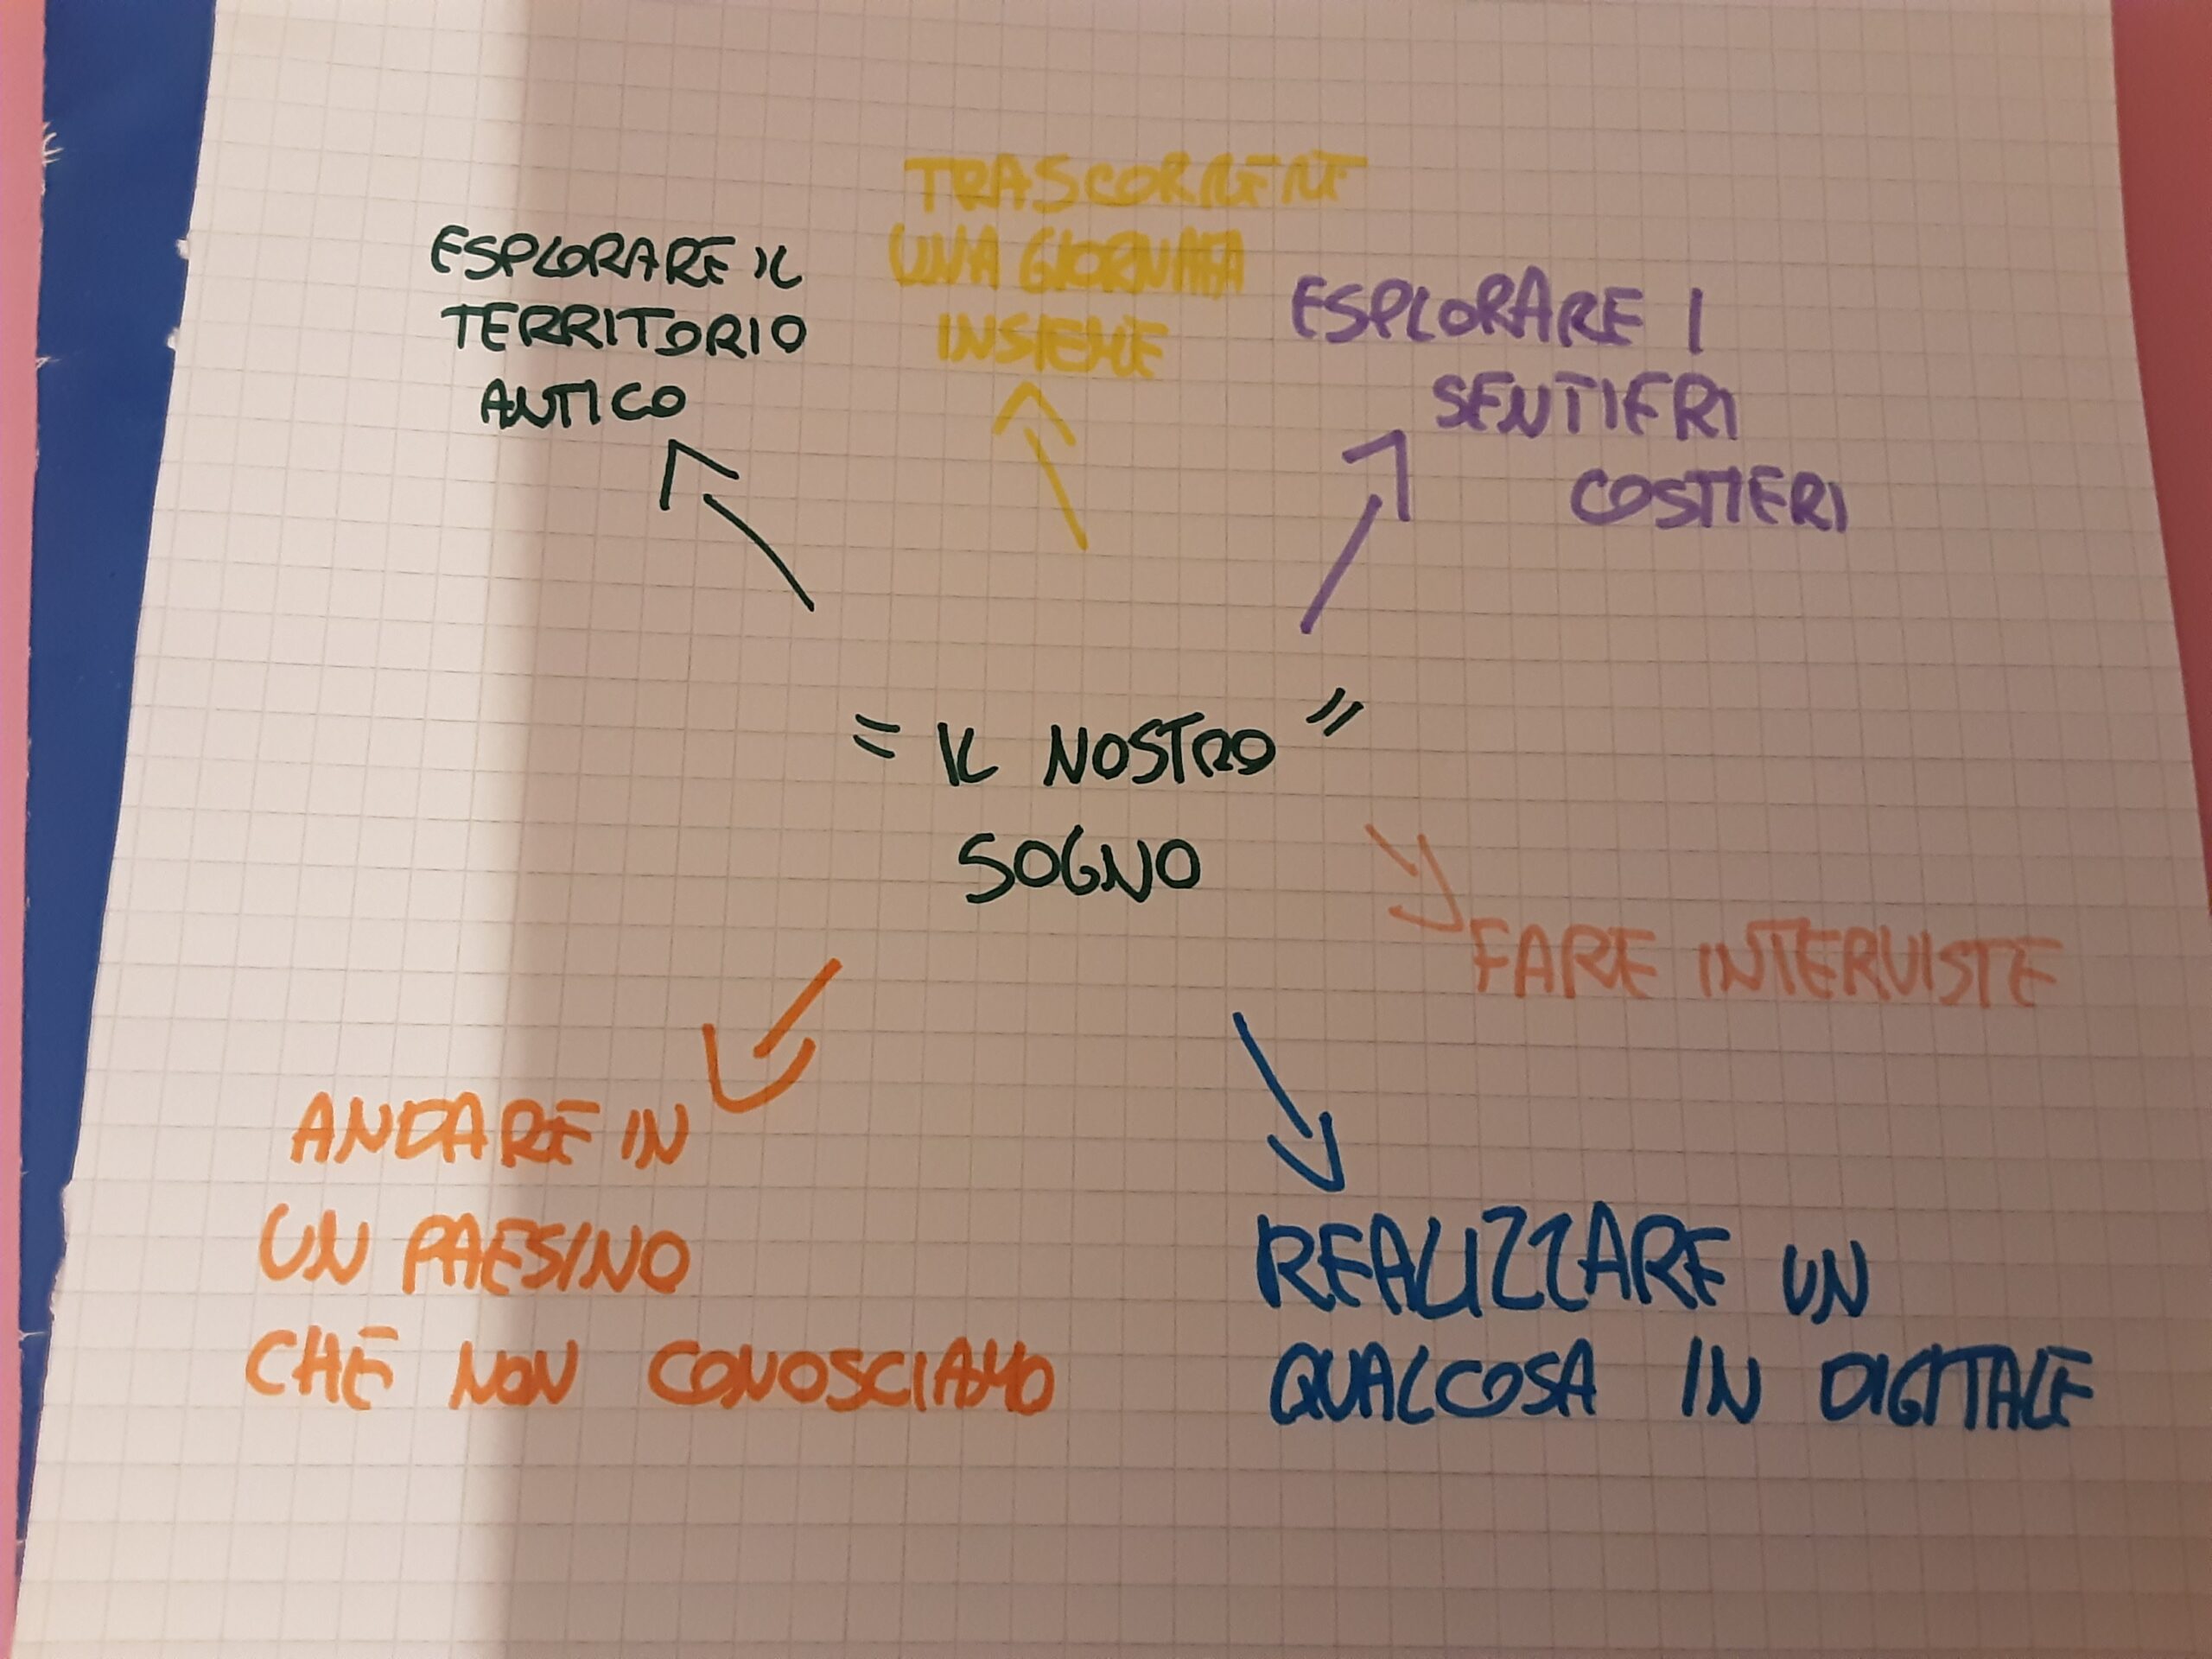 ESPLORARE IL
TERRITORIO
ANTICO
TRASCORRERE
UNA GIORNATA
INSIEME
ESPLORARE I
SENTIERI
COSTIERI
"IL NOSTRO"
SOGNO
FARE INTERVISTE
ANDARE IN
UN PAESINO
CHE NON CONOSCIAMO
REALIZZARE UN
QUALCOSA IN DIGITALE